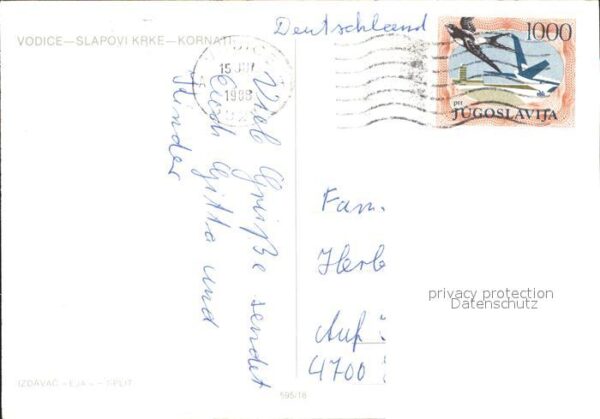 VODICE—SLAPOVI KRKE—KORNATI
Deutschland
15
1988
1000
PTT
JUGOSLAVIJA
Viele Grüße sendet
Euch Gitta und
Kinder
Fam.
Herb
privacy protection
Datenschutz
Auf
4700
IZDAVAČ «EJA» – SPLIT
595/18